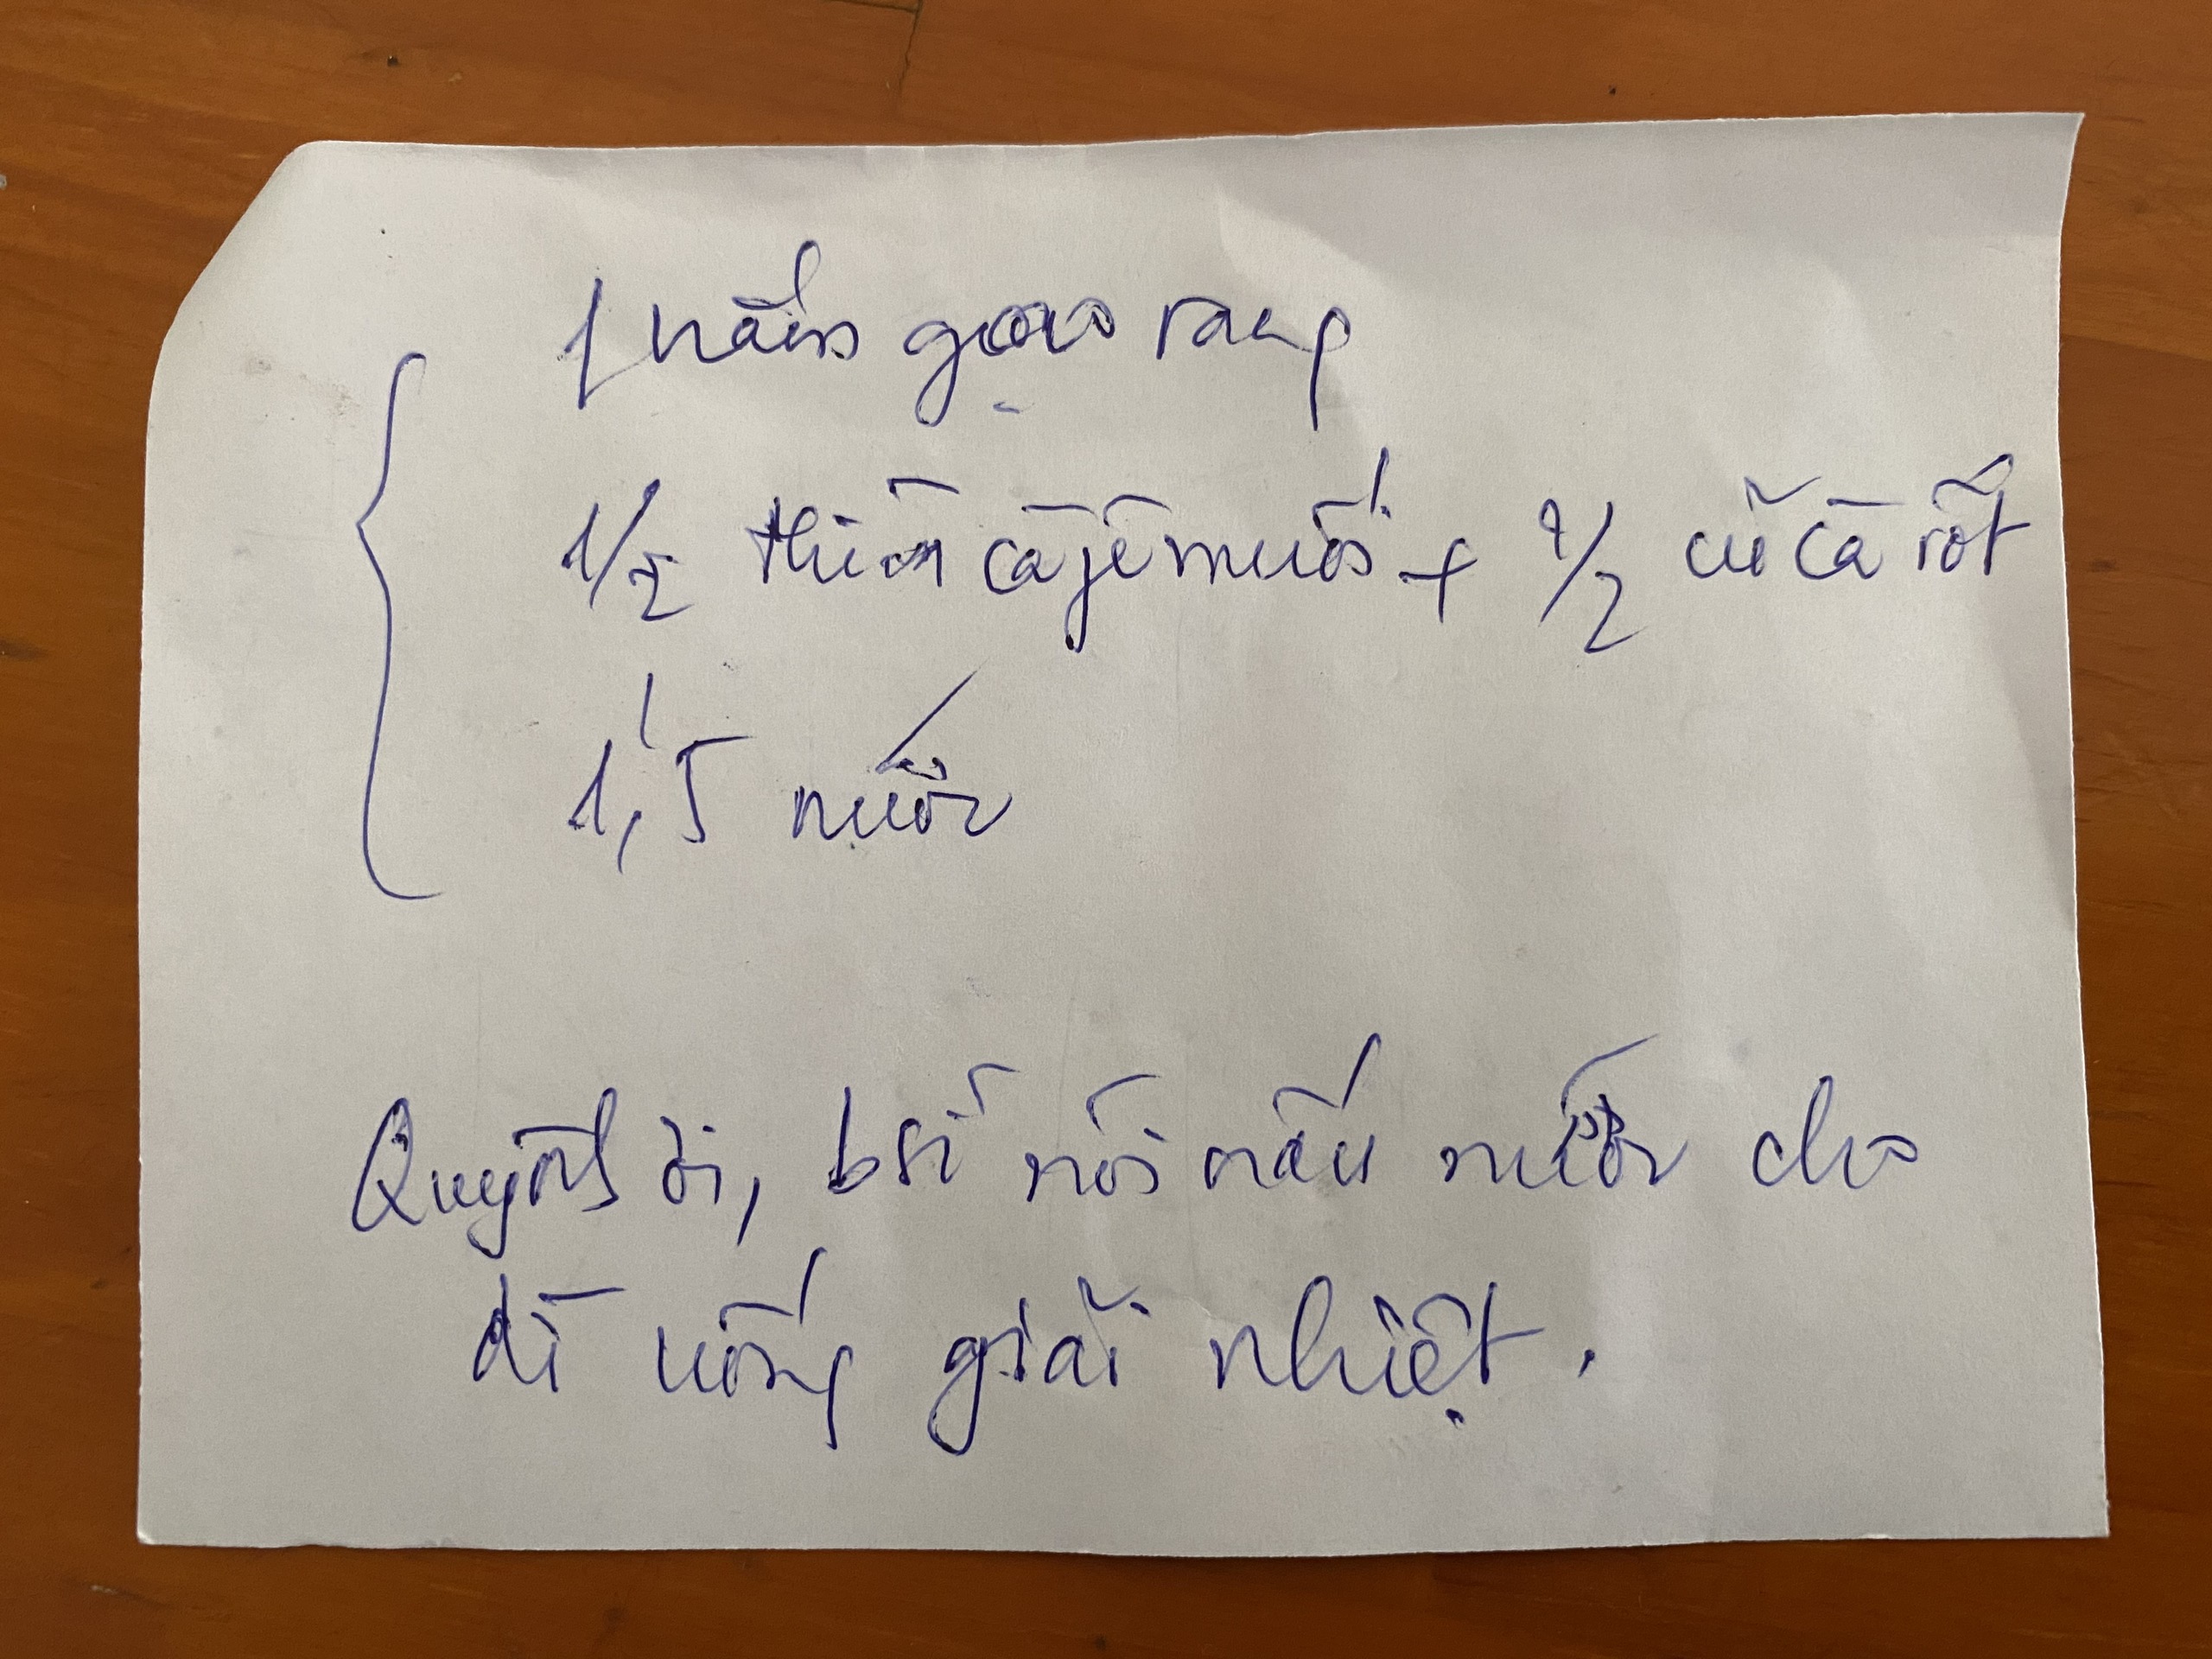 1 nắm gạo rang
1/2 thìa cà fê muối + 1/2 củ cà rốt
1,5 l nước
Quỳnh ơi, bsĩ nói nấu nước cho
dì uống giải nhiệt.